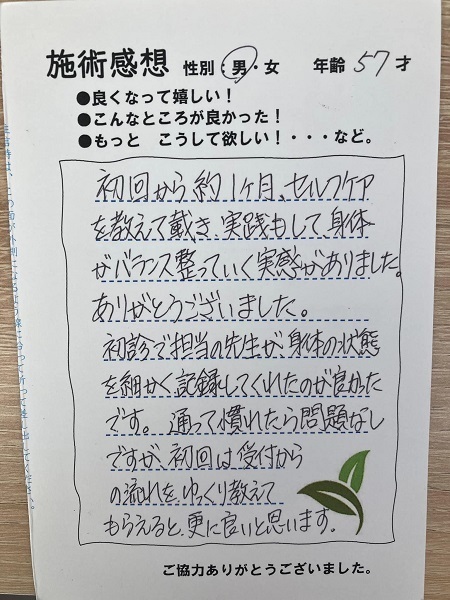 施術感想 性別:男・女 年齢 57才
●良くなって嬉しい!
●こんなところが良かった!
●もっと こうして欲しい!・・・など。
初回から約1ヶ月、セルフケア
を教えて戴き、実践もして、身体
がバランス整っていく実感がありました。
ありがとうございました。
初診で担当の先生が、身体の状態
を細かく記録してくれたのが良かった
です。通って慣れたら問題なし
ですが、初回は受付から
の流れを、ゆっくり教えて
もらえると、更に良いと思います。
ご協力ありがとうございました。